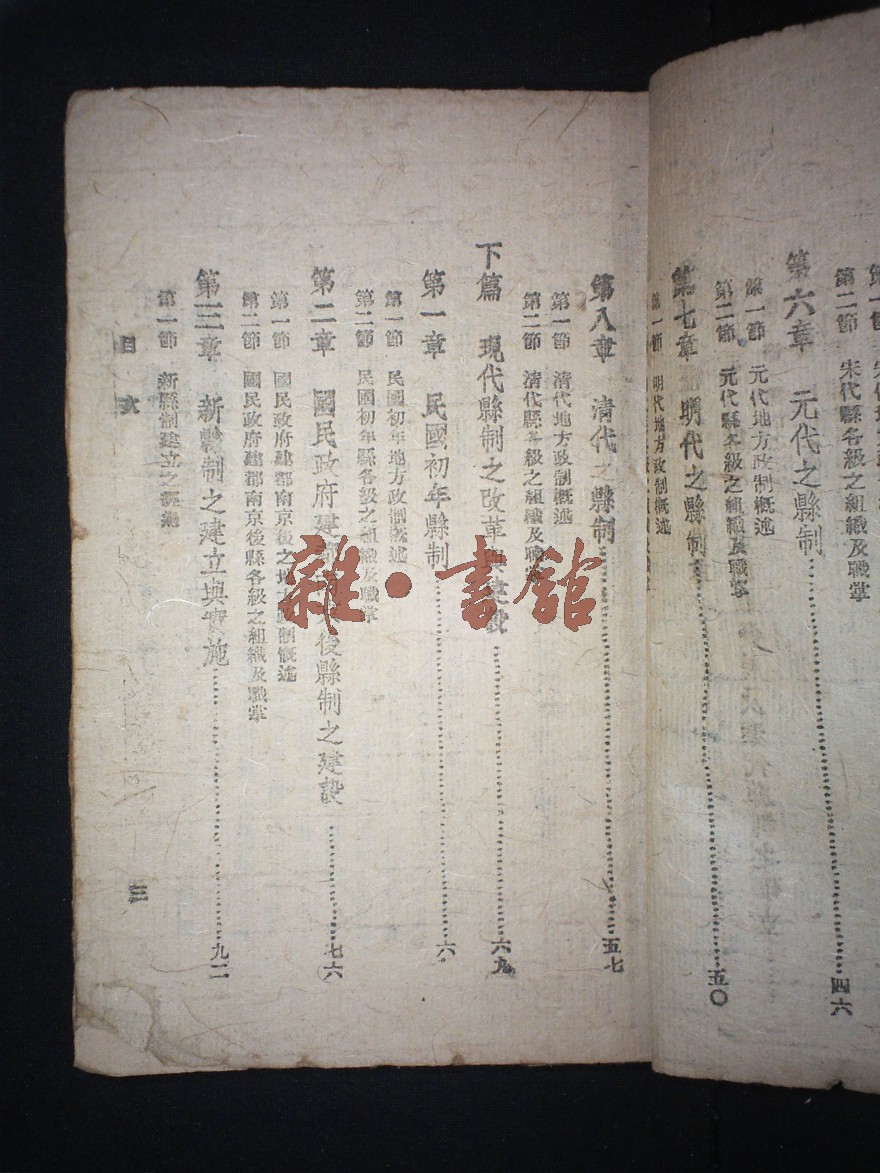 第二節 宋代縣各級之組織及職掌
第六章 元代之縣制……四六
第一節 元代地方政制概述
第二節 元代縣各級之組織及職掌
第七章 明代之縣制……五〇
第一節 明代地方政制概述
第八章 清代之縣制……五七
第一節 清代地方政制概述
第二節 清代縣各級之組織及職掌
下篇 現代縣制之改革與建設……六九
第一章 民國初年縣制……六
第一節 民國初年地方政制概述
第二節 民國初年縣各級之組織及職掌
第二章 國民政府建都 後縣制之建設……七六
第一節 國民政府建都南京後之地方政制概述
第二節 國民政府建都南京後縣各級之組織及職掌
第三章 新縣制之建立與實施……九二
第一節 新縣制建立之
目次
三
雜·書館